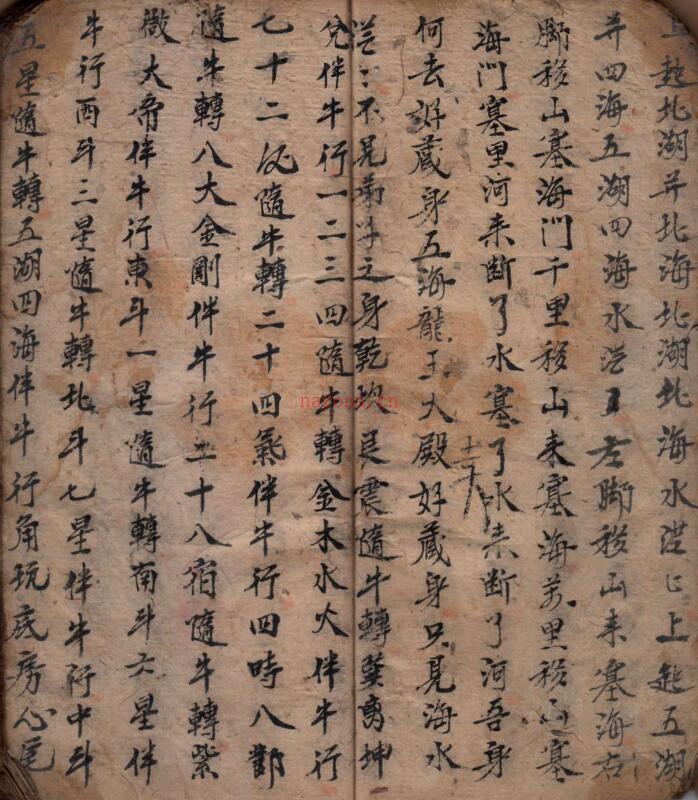 上起北湖并北海北湖北海水茫〻上起五湖
并四海五湖四海水茫〻左脚移山来塞海右
脚移山塞海门千里移山来塞海万里移山塞
海门塞里河来断了水塞了水来断了河吾身
何去好藏身五海龍王大殿好藏身只見海水
茫〻不見弟子之身乾坎艮震隨牛轉巽离坤
兌伴牛行一二三四隨牛轉金木水火伴牛行
七十二 隨牛轉二十四氣伴牛行四時八節
隨牛轉八大金剛伴牛行二十八宿隨牛轉紫
微大帝伴牛行東斗一星隨牛轉南斗六星伴
牛行西斗三星隨牛轉北斗七星伴牛行中斗
五星隨牛轉五湖四海伴牛行角玩底房心尾